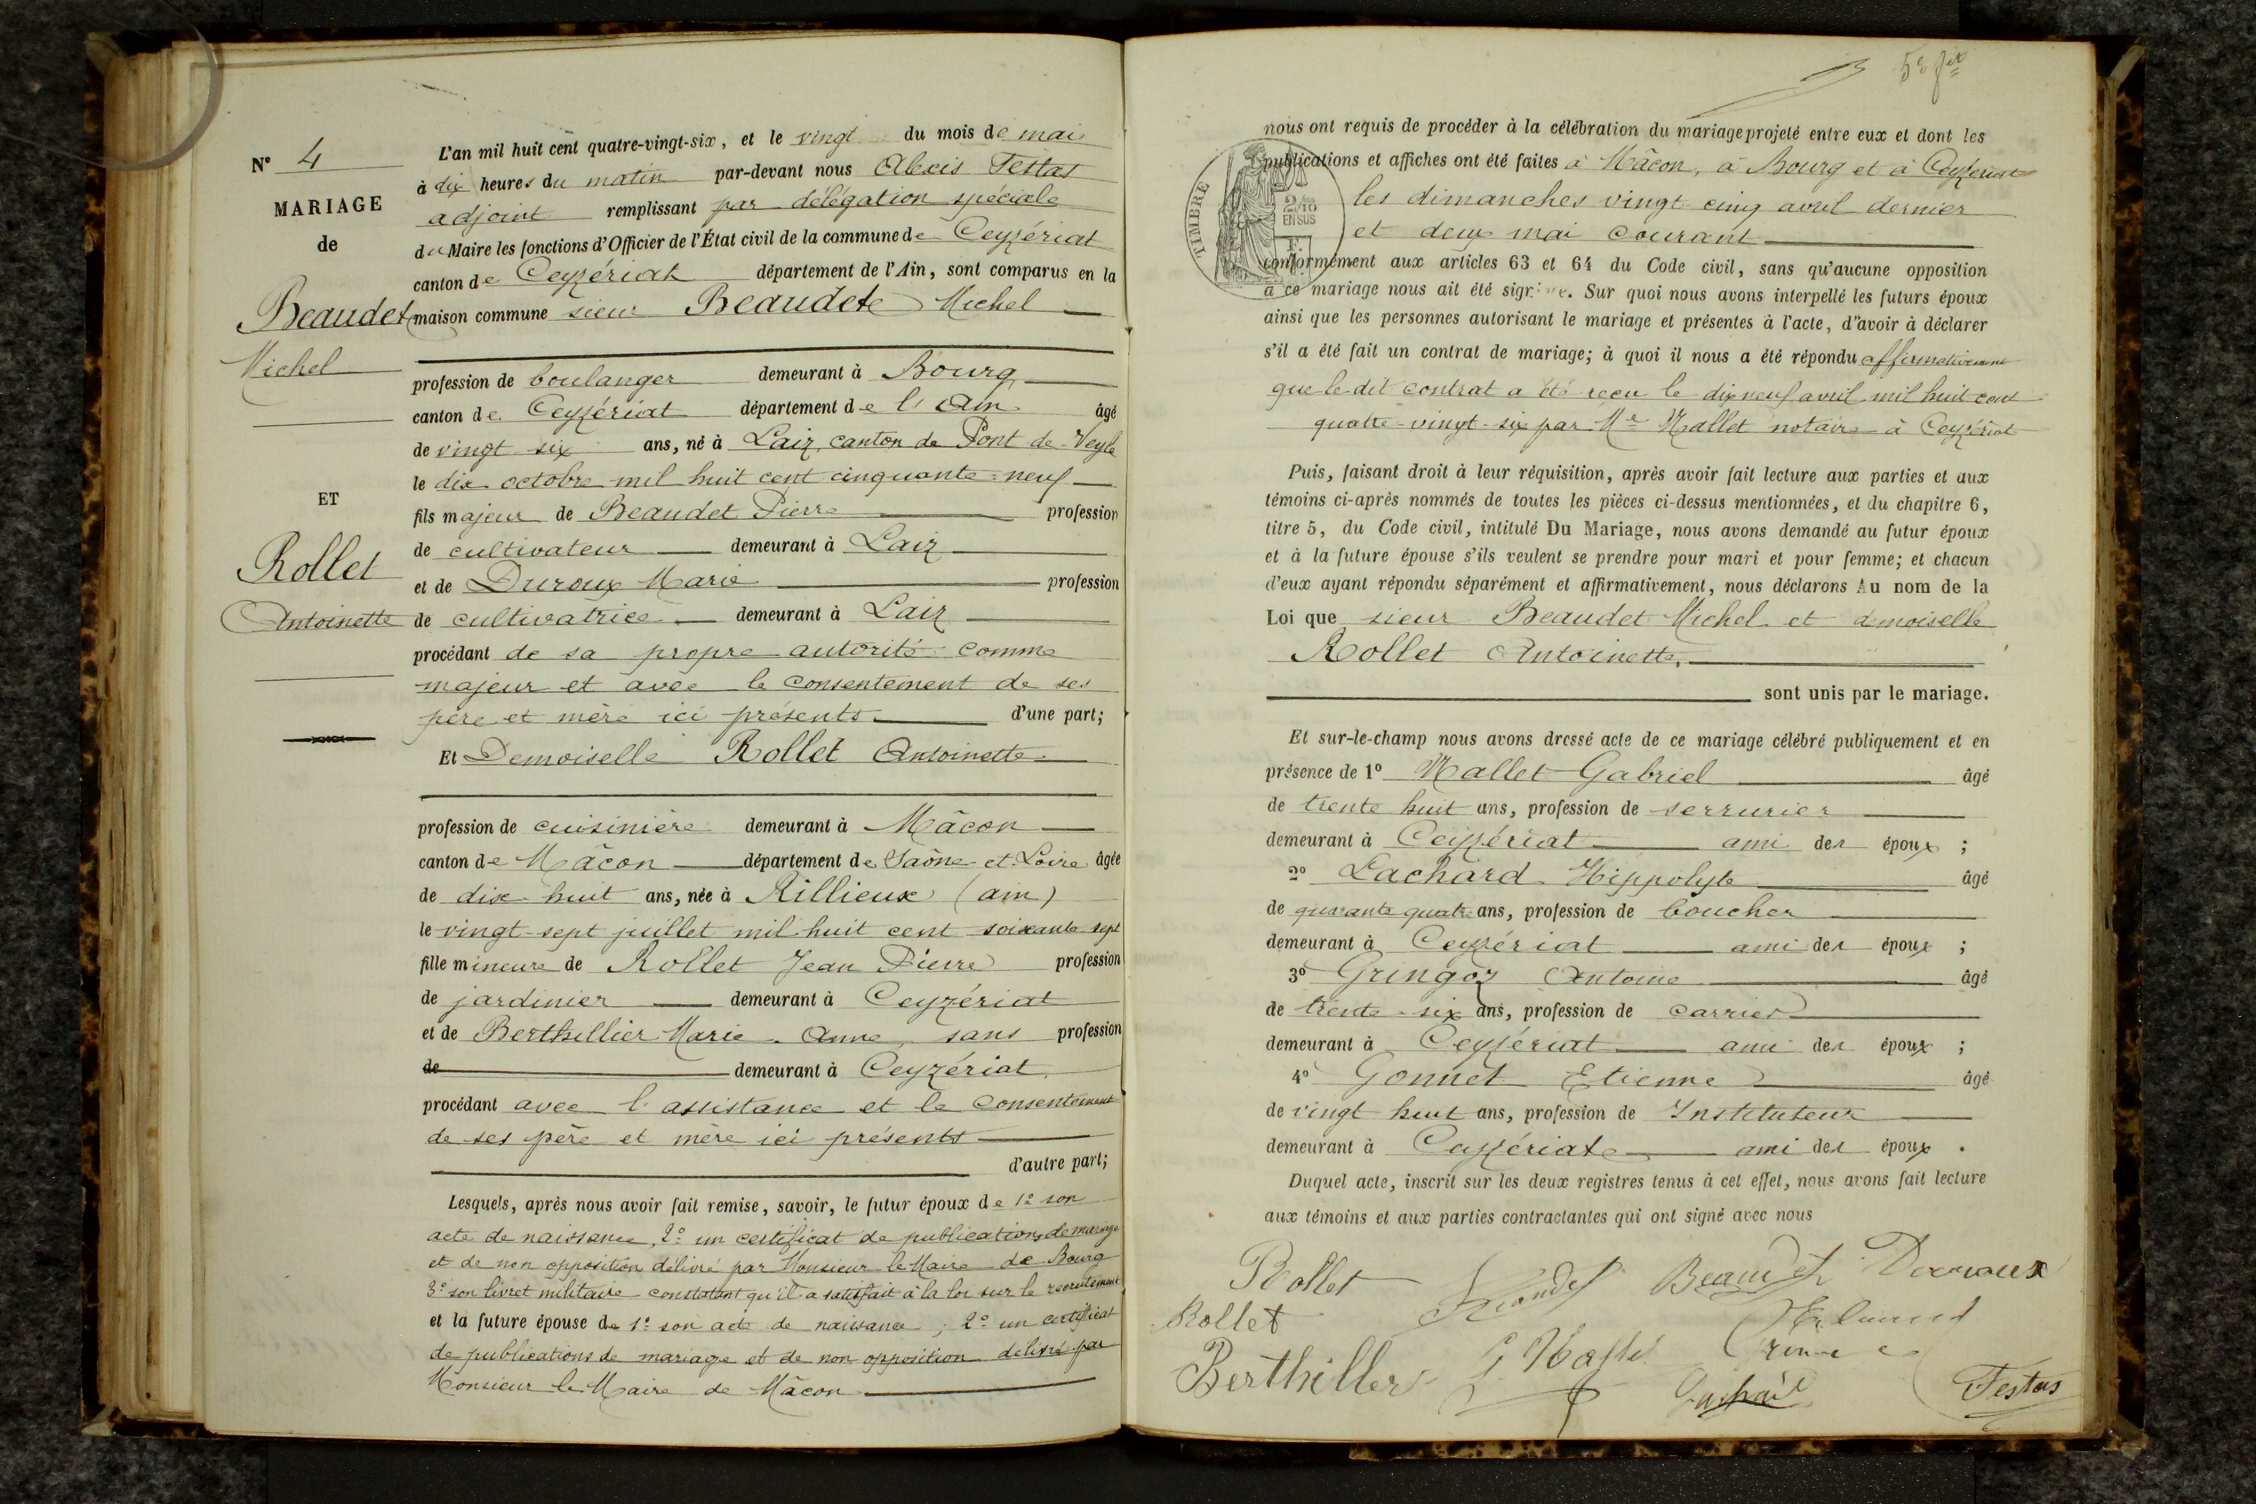 N° 4
MARIAGE
de
Beaudet
Michel
ET
Rollet
Antoinette
L'an mil huit cent quatre-vingt-six, et le vingt du mois de mai
à dix heures du matin par-devant nous Alexis Testas
adjoint remplissant par délégation spéciale
du Maire les fonctions d'Officier de l'État civil de la commune de Ceyzériat
canton de Ceyzériat département de l'Ain, sont comparus en la
maison commune sieur Beaudet Michel
profession de boulanger demeurant à Bourg
canton de Ceyzériat département de l'Ain âgé
de vingt six ans, né à Laiz, canton de Pont de Veyle
le dix octobre mil huit cent cinquante-neuf
fils majeur de Beaudet Pierre profession
de cultivateur demeurant à Laiz
et de Duroux Marie profession
de cultivatrice demeurant à Laiz
procédant de sa propre autorité comme
majeur et avec le consentement de ses
père et mère ici présents d'une part;
Et Demoiselle Rollet Antoinette
profession de cuisinière demeurant à Mâcon
canton de Mâcon département de Saône-et-Loire âgée
de dix-huit ans, née à Rillieux (ain)
le vingt-sept juillet mil huit cent soixante sept
fille mineure de Rollet Jean Pierre profession
de jardinier demeurant à Ceyzériat
et de Berthillier Marie Anne, sans profession
de demeurant à Ceyzériat
procédant avec l'assistance et le consentement
de ses père et mère ici présents
d'autre part;
Lesquels, après nous avoir fait remise, savoir, le futur époux de 1° son
acte de naissance, 2° un certificat de publications de mariage
et de non opposition délivré par Monsieur le Maire de Bourg
3° son livret militaire constatant qu'il a satisfait à la loi sur le recrutement
et la future épouse de 1° son acte de naissance; 2° un certificat
de publications de mariage et de non opposition délivré par
Monsieur le Maire de Mâcon
nous ont requis de procéder à la célébration du mariage projeté entre eux et dont les
publications et affiches ont été faites à Mâcon, à Bourg et à Ceyzériat
TIMBRE
2/10
EN SUS
les dimanches vingt cinq avril dernier
et deux mai courant
conformément aux articles 63 et 64 du Code civil, sans qu'aucune opposition
à ce mariage nous ait été signifiée. Sur quoi nous avons interpellé les futurs époux
ainsi que les personnes autorisant le mariage et présentes à l'acte, d'avoir à déclarer
s'il a été fait un contrat de mariage; à quoi il nous a été répondu affirmativement
que le dit contrat a été reçu le dix neuf avril mil huit cent
quatre-vingt-six par Me Mallet notaire à Ceyzériat
Puis, faisant droit à leur réquisition, après avoir fait lecture aux parties et aux
témoins ci-après nommés de toutes les pièces ci-dessus mentionnées, et du chapitre 6,
titre 5, du Code civil, intitulé Du Mariage, nous avons demandé au futur époux
et à la future épouse s'ils veulent se prendre pour mari et pour femme; et chacun
d'eux ayant répondu séparément et affirmativement, nous déclarons Au nom de la
Loi que sieur Beaudet Michel et demoiselle
Rollet Antoinette,
sont unis par le mariage.
Et sur-le-champ nous avons dressé acte de ce mariage célébré publiquement et en
présence de 1° Mallet Gabriel âgé
de trente huit ans, profession de serrurier
demeurant à Ceyzériat ami des époux ;
2° Lachard Hippolyte âgé
de quarante quatre ans, profession de boucher
demeurant à Ceyzériat ami des époux ;
3° Gringoz Antoine âgé
de trente-six ans, profession de carrier
demeurant à Ceyzériat ami des époux ;
4° Gonnet Etienne âgé
de vingt huit ans, profession de Instituteur
demeurant à Ceyzériat ami des époux .
Duquel acte, inscrit sur les deux registres tenus à cet effet, nous avons fait lecture
aux témoins et aux parties contractantes qui ont signé avec nous
Rollet Beaudet Duroux
Rollet
Berthillier
Testas